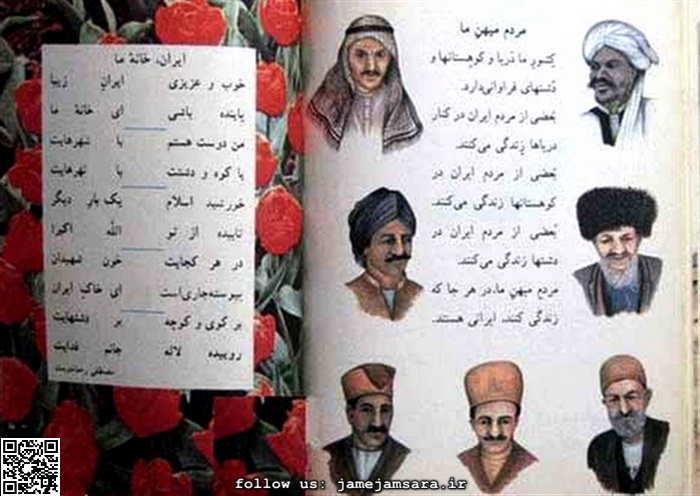 مردم میهن ما
کشور ما دریا و کوهستانها و
دشتهای فراوانی دارد.
بعضی از مردم ایران در کنار
دریاها زندگی می‌کنند.
بعضی از مردم ایران در
کوهستانها زندگی می‌کنند.
بعضی از مردم ایران در
دشتها زندگی می‌کنند.
مردم میهن ما، در هر جا که
زندگی کنند، ایرانی هستند.
ایران، خانهٔ ما
خوب و عزیزی ایران زیبا
پاینده باشی ای خانهٔ ما
من دوست هستم با شهرهایت
با کوه و دشتت با نهرهایت
خورشید اسلام یک بار دیگر
تابیده از تو الله اکبر!
در هر کجایت خون شهیدان
پیوسته جاری است ای خاک ایران
بر کوی و کوچه بر دشتهایت
روییده لاله جانم فدایت
مصطفی رحماندوست
follow us: jamejamsara.ir